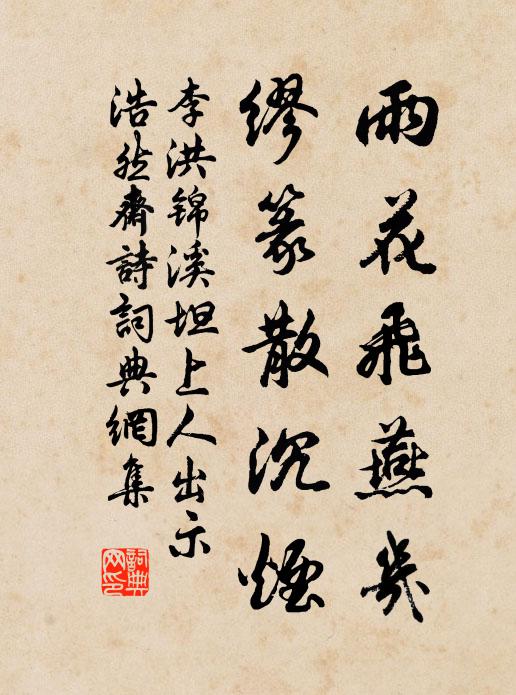 雨花飛燕几
繆篆散沉煙
李洪錦溪坦上人出示
浩然齋詩詞典網集
詞典网印